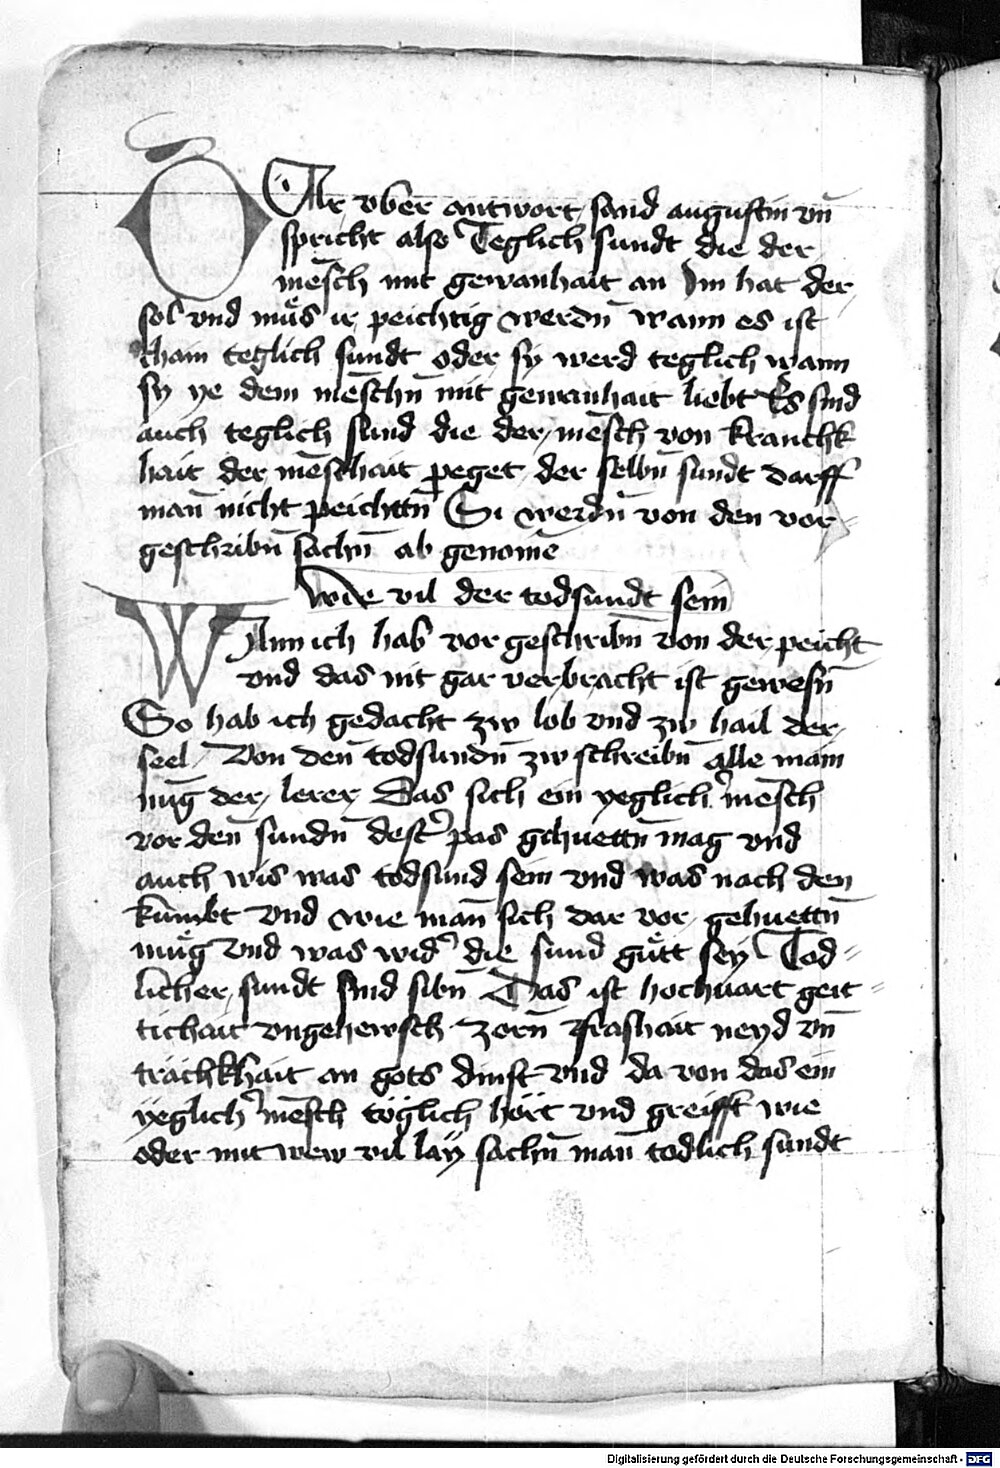 DAr vber antwort sand augustin vn̄
spricht also Teglich sundt die der
mēsch mit gewanhait an Im hat der
sol vnd muͤs ir peichtig werdn̄ wann es ist
chain teglich sundt oder sy werd teglich wann
sy ye dem mēschn̄ mit gewanhait liebt Es sind
auch teglich sund die der mēsch von kranchk
hait der mēschait peget der selbn̄ sundt darff
man̄ nicht peichttn̄ Si werdn̄ von den vor-
geschribn̄ sachn̄ ab genomē
Wie vil der todsundt sein
WAnn ich hab vor geschribn̄ von der peicht
vnd das nit gar verbracht ist gewesn̄
So hab ich gedacht zw lob vnd zw hail der
seel Von den todsundn̄ zw schreibn̄ alle main
nūg der lerer Das sich ein yeglich' mēsch
vor den sundn̄ dest' pas gehuettn̄ mag vnd
auch wis was todsund sein vnd was nach den
kumbt vnd wie man̄ sich dar vor gehuettn̄
muͤg vnd was wid' die sund guͤtt sey Tod=
licher sundt sind sibn̄ Das ist hochuart geit=
tichait vngehewsch zorn̄ frashait neyd vn̄
trächkhait an gots dinst vnd da von das ein
ÿeglich' mēsch töglich hört vnd greifft wie
oder mit wew vil laÿ sachn̄ man̄ todlich sundt
Digitalisierung gefördert durch die Deutsche Forschungsgemeinschaft - DFG